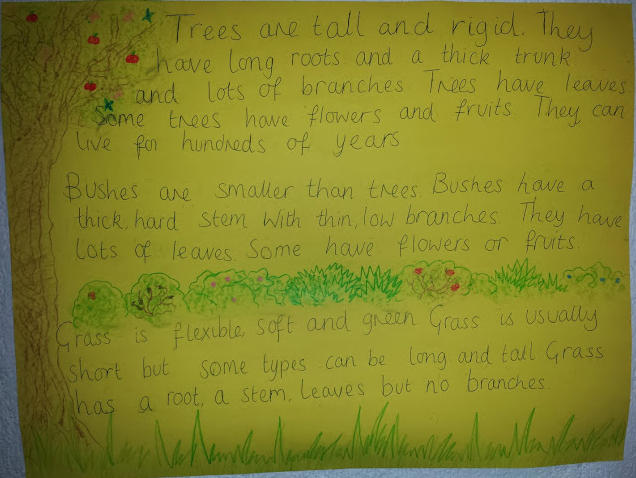 Trees are tall and rigid. They
have long roots and a thick trunk
and lots of branches Trees have leaves.
Some trees have flowers and fruits. They can
live for hundreds of years
Bushes are smaller than trees. Bushes have a
thick, hard stem with thin, low branches. They have
lots of leaves. Some have flowers or fruits.
Grass is flexible, soft and green Grass is usually
short but some types can be long and tall Grass
has a root, a stem, leaves but no branches.